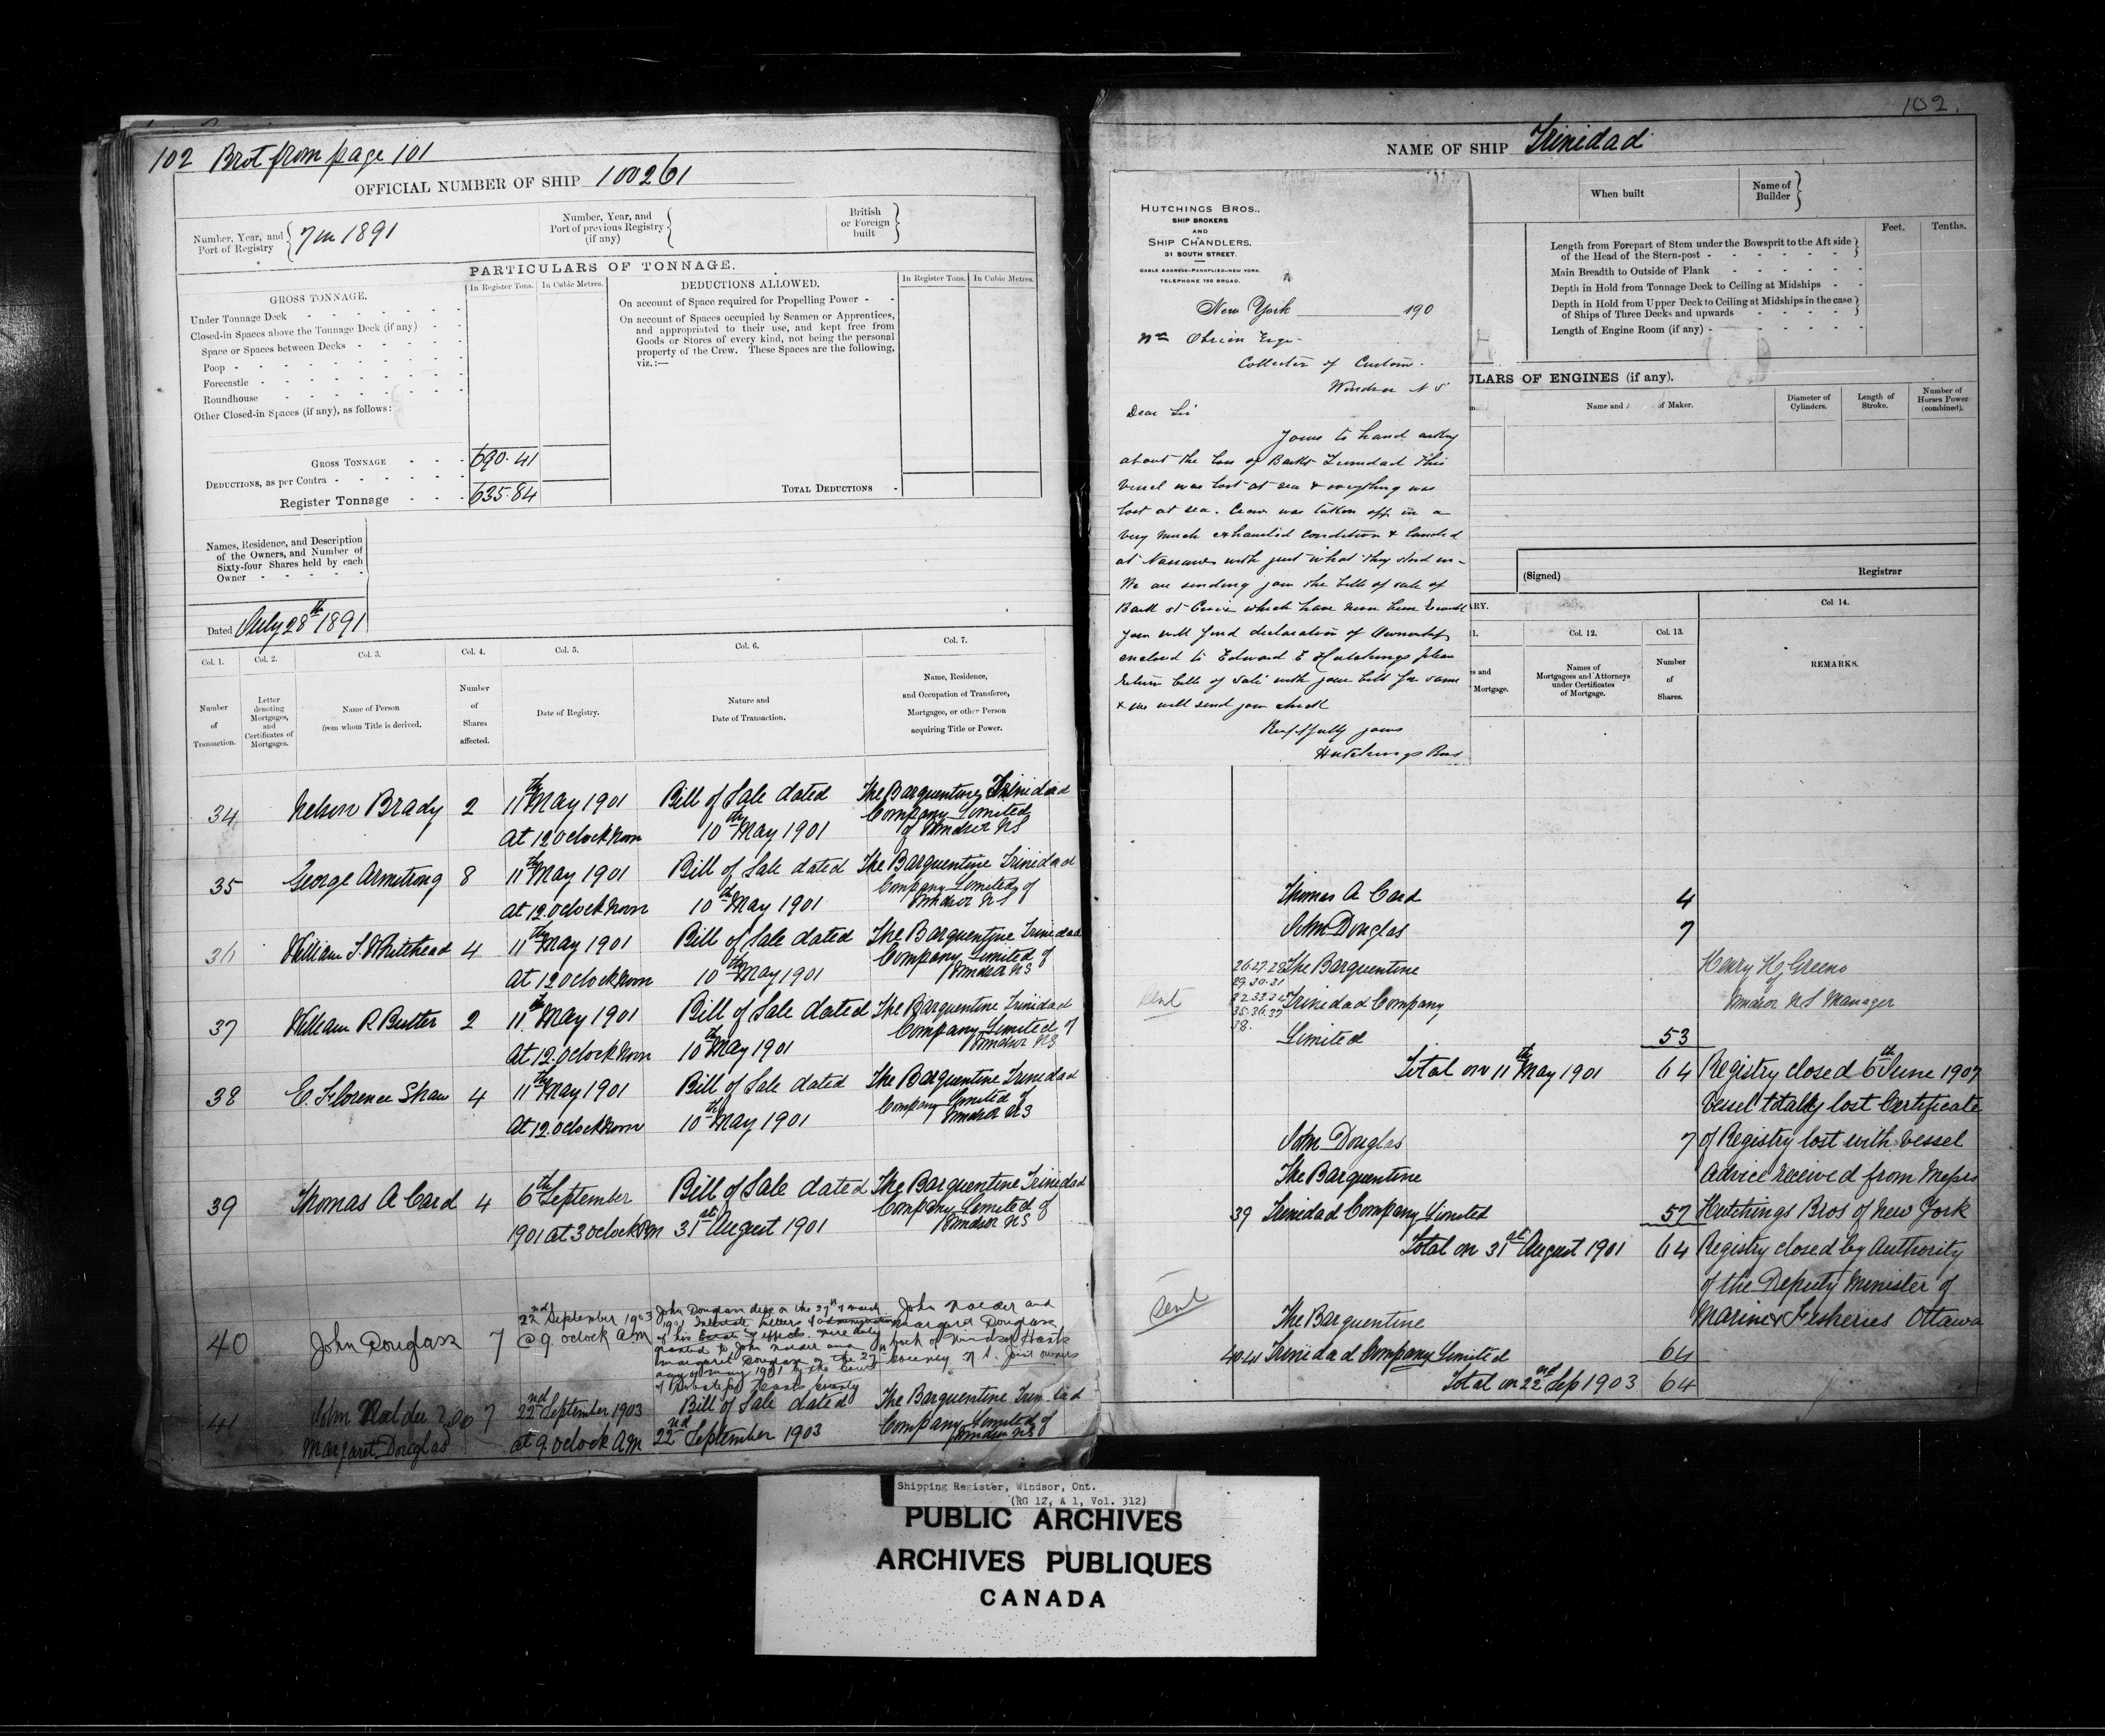 102 Brot from page 101
OFFICIAL NUMBER OF SHIP 100261
Number, Year, and Port of Registry { 7 in 1891
Number, Year, and Port of previous Registry (if any) {
British or Foreign built }
PARTICULARS OF TONNAGE.
GROSS TONNAGE.
In Register Tons.
In Cubic Metres.
Under Tonnage Deck
Closed-in Spaces above the Tonnage Deck (if any)
Space or Spaces between Decks
Poop
Forecastle
Roundhouse
Other Closed-in Spaces (if any), as follows:
GROSS TONNAGE 690.41
DEDUCTIONS, as per Contra
Register Tonnage 635.84
DEDUCTIONS ALLOWED.
In Register Tons.
In Cubic Metres.
On account of Space required for Propelling Power
On account of Spaces occupied by Seamen or Apprentices,
and appropriated to their use, and kept free from
Goods or Stores of every kind, not being the personal
property of the Crew. These Spaces are the following,
viz.:—
TOTAL DEDUCTIONS
Names, Residence, and Description
of the Owners, and Number of
Sixty-four Shares held by each
Owner
Dated July 28th 1891
Col. 1.
Col. 2.
Col. 3.
Col. 4.
Col. 5.
Col. 6.
Col. 7.
Number of Transaction.
Letter denoting Mortgages, and Certificates of Mortgages.
Name of Person from whom Title is derived.
Number of Shares affected.
Date of Registry.
Nature and Date of Transaction.
Name, Residence, and Occupation of Transferee, Mortgagee, or other Person acquiring Title or Power.
34 Nelson Brady 2 11th May 1901 Bill of Sale dated The Barquentine Trinidad
Company Limited
At 12 Oclock Noon 10th May 1901 of Windsor NS
35 George Armstrong 8 11th May 1901 Bill of Sale dated The Barquentine Trinidad
Company Limited of
At 12.Oclock Noon 10th May 1901 Windsor NS
36 William S. Whitehead 4 11th May 1901 Bill of Sale dated The Barquentine Trinidad
Company Limited of
At 12 Oclock Noon 10th May 1901 Windsor NS
37 William R Butler 2 11th May 1901 Bill of Sale dated The Barquentine Trinidad
Company Limited of
At 12.Oclock Noon 10th May 1901 Windsor NS
38 C. Florence Shaw 4 11th May 1901 Bill of Sale dated The Barquentine Trinidad
Company Limited of
At 12.Oclock Noon 10th May 1901 Windsor NS
39 Thomas A Card 4 6th September Bill of Sale dated The Barquentine Trinidad
Company Limited of
1901 at 3 Oclock PM 31st August 1901 Windsor NS
40 John Douglass 7 22nd September 1903
@ 9 oclock A.M
John Douglass died on the 27th of March
1901 Intestate Letters of administration
of his Estate & effects were duly
granted to John Nalder and
Margaret Douglass on the 27th
day of May 1901 by the Court
of Probate for Hants County
John Nalder and
Margaret Douglass
both of Windsor Hants
County N.S. Joint owners
41 John Nalder 7 22nd September 1903 Bill of Sale dated The Barquentine Trinidad
Margaret Douglas at 9.Oclock AM 22nd September 1903 Company Limited of
Windsor NS
102.
NAME OF SHIP Trinidad
When built
Name of Builder }
Feet.
Tenths.
Length from Forepart of Stem under the Bowsprit to the Aft side
of the Head of the Stern-post
Main Breadth to Outside of Plank
Depth in Hold from Tonnage Deck to Ceiling at Midships
Depth in Hold from Upper Deck to Ceiling at Midships in the case
of Ships of Three Decks and upwards
Length of Engine Room (if any)
ULARS OF ENGINES (if any).
Name and of Maker.
Diameter of Cylinders.
Length of Stroke.
Number of Horses Power (combined).
(Signed)
Registrar
HUTCHINGS BROS.,
SHIP BROKERS
AND
SHIP CHANDLERS.
31 SOUTH STREET.
CABLE ADDRESS-PANOPLIED-NEW YORK.
TELEPHONE 780 BROAD.
New York 190
Wm Obrien Esqr.
Collector of Custom.
Windsor N S
Dear Sir
Yours to hand asking
about the loss of Barkt Trinidad This
Vessel was lost at sea & everything was
lost at sea. Crew was taken off in a
very much exhausted condition & landed
at Nassau with just what they stood in.
We are sending you the bills of sale of
Bark St Croix which have never been
you will find declaration of Ownership
enclosed to Edward E Hutchings please
return bills of sale with your bill for same
& we will send you check
Respfully yours
Hutchings Bros
RY.
Col. 12.
Col. 13.
Col 14.
s and Mortgage.
Names of Mortgagees and Attorneys under Certificates of Mortgage.
Number of Shares.
REMARKS.
Thomas A Card 4
John Douglas 7
26.27.28 The Barquentine Henry H. Greeno
29.30.31
sent Trinidad Company Windsor NS Manager
35.36.37
38.
Limited 53
Total on 11th May 1901 64 Registry closed 6th June 1907
Vessel totally lost Certificate
John Douglas 7 of Registry lost with Vessel
The Barquentine Advice received from Messrs
39 Trinidad Company Limited 57 Hutchings Bros of New York
Total on 31st August 1901 64 Registry closed by Authority
of the Deputy Minister of
sent The Barquentine Marine & Fisheries Ottawa
40.41 Trinidad Company Limited 64
Total on 22nd Sep 1903 64
Shipping Register, Windsor, Ont.
(RG 12, A 1, Vol. 312)
PUBLIC ARCHIVES
ARCHIVES PUBLIQUES
CANADA